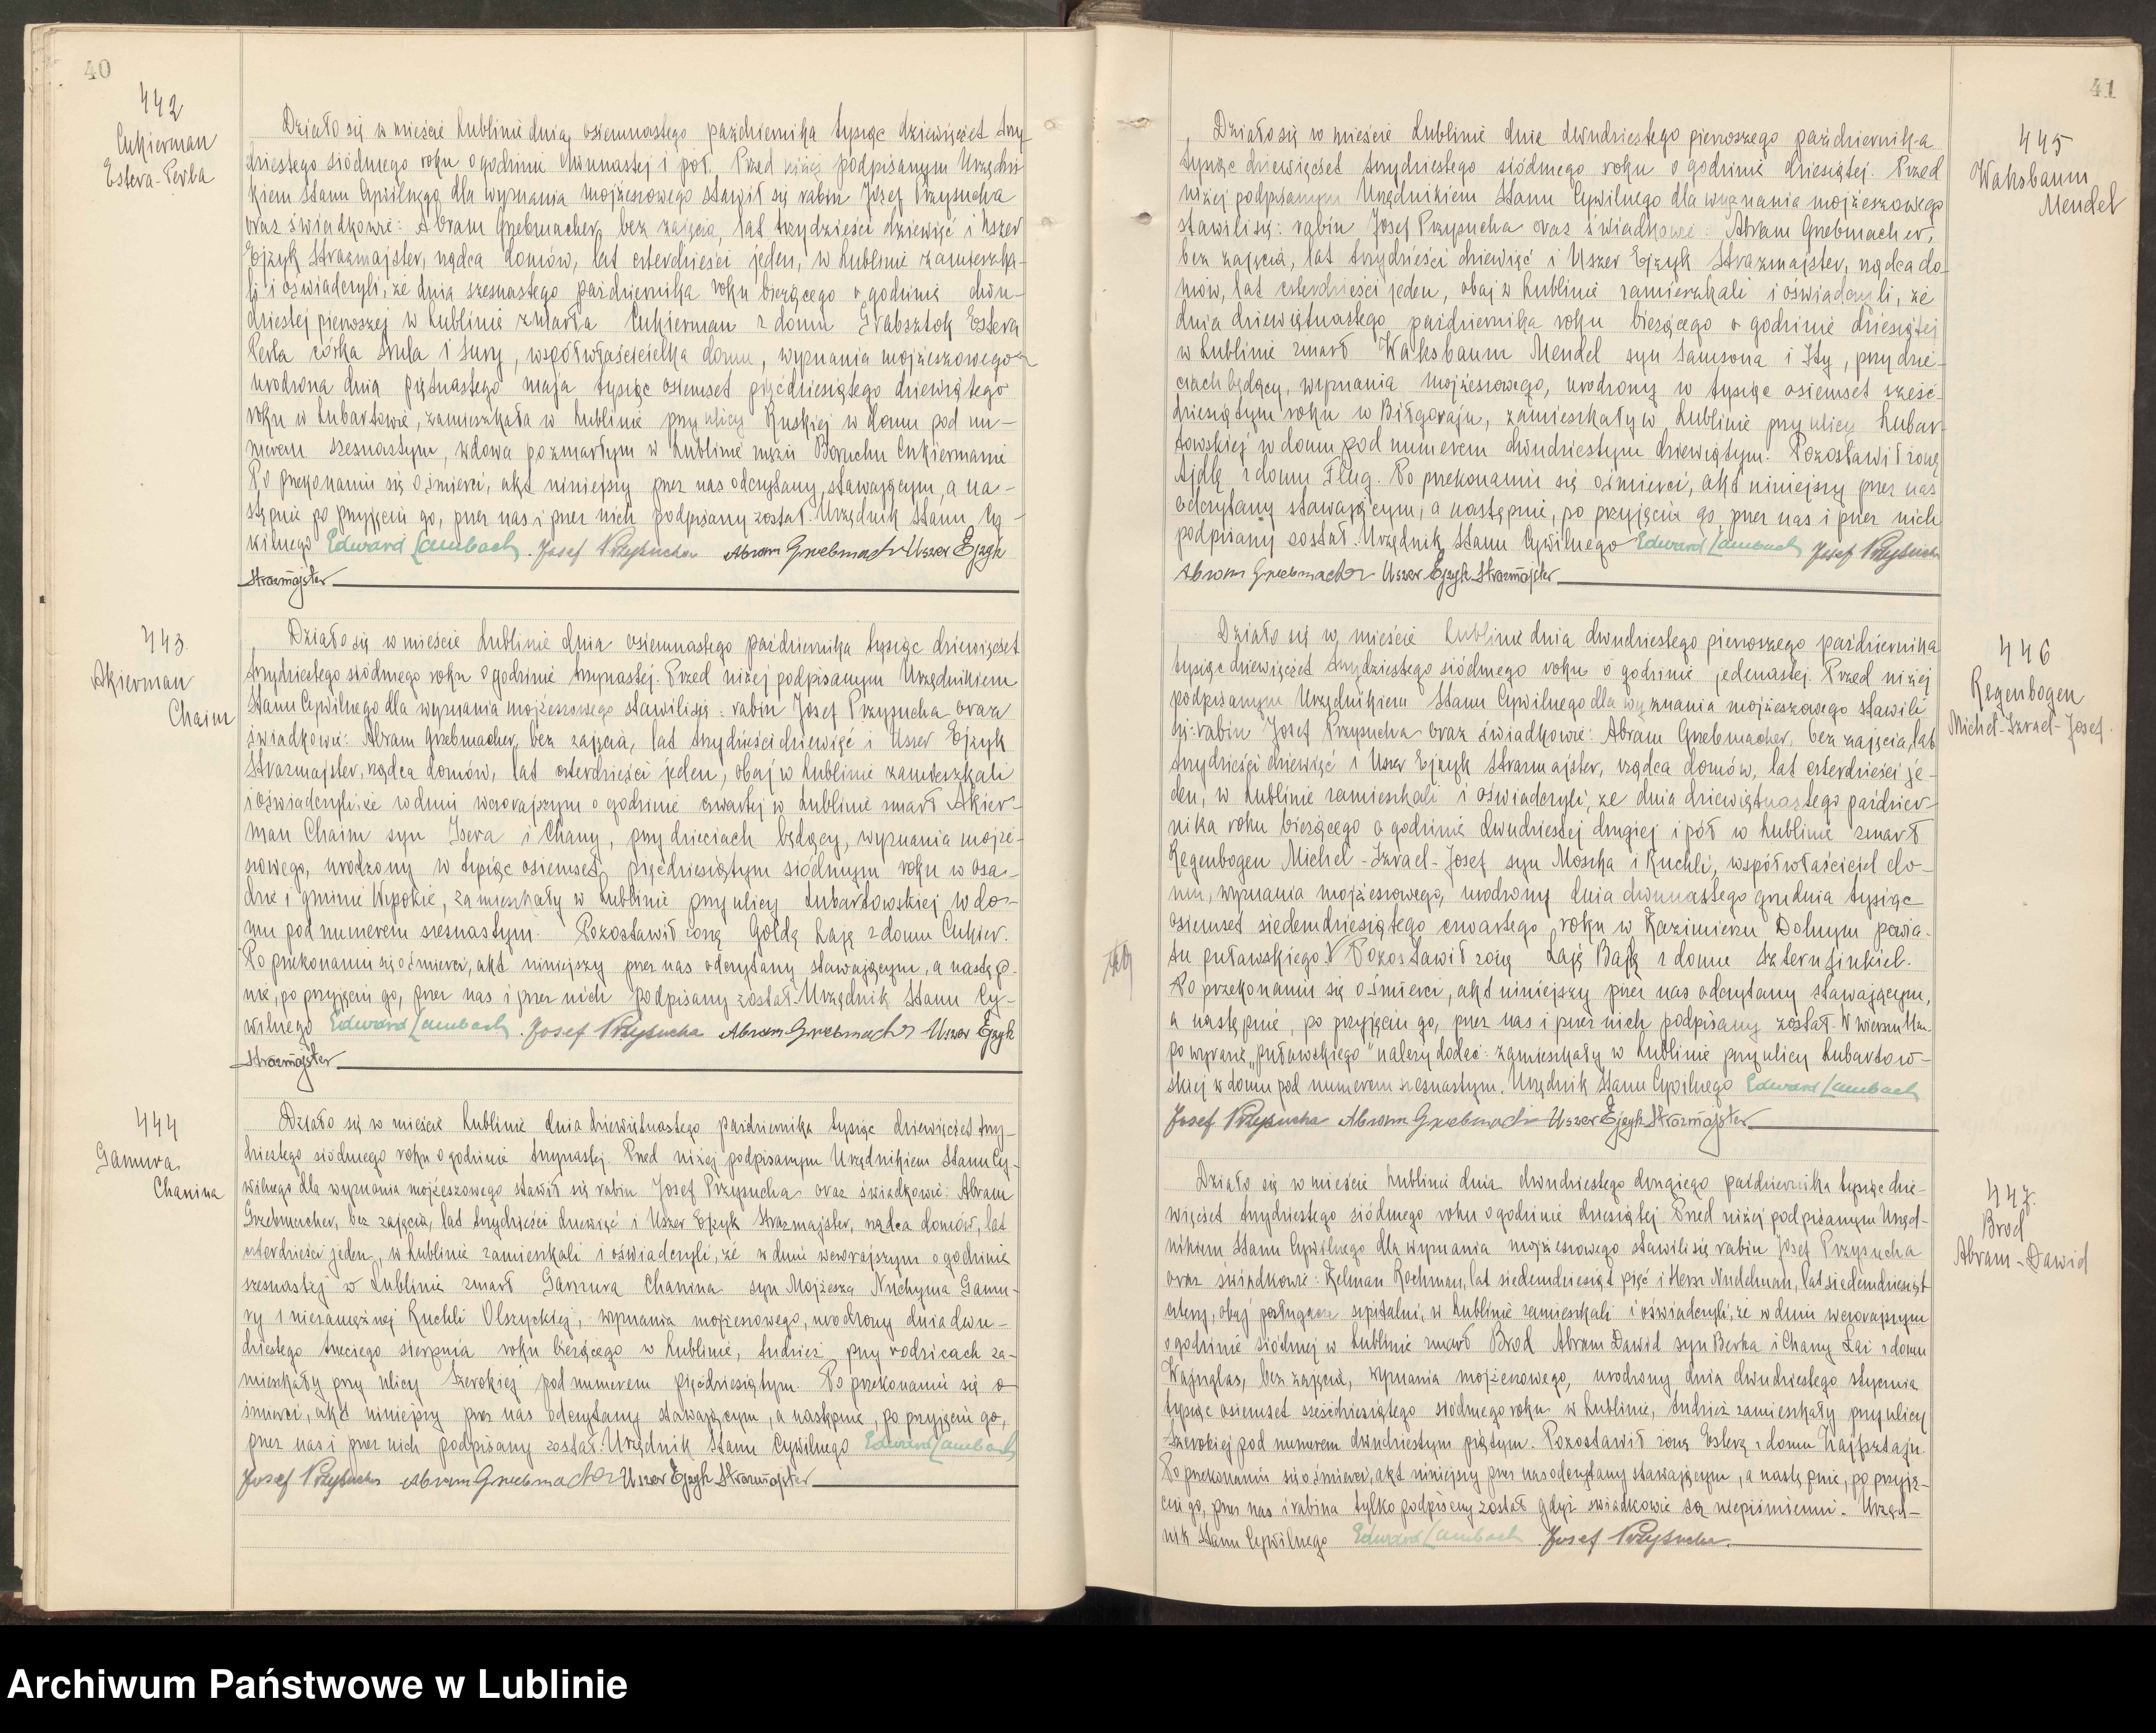 40
442
Cukierman
Estera-Perla
Działo się w mieście Lublinie dnia osiemnastego października tysiąc dziewięćset trzy-
dziestego siódmego roku o godzinie dwunastej i pół. Przed niżej podpisanym Urzędni
kiem Stanu Cywilnego dla wyznania mojżeszowego stawił się rabin Josef Przysucha
oraz świadkowie: Abram Grzebmacher, bez zajęcia, lat trzydzieści dziewięć i Uszer
Ejzyk Strazmajster, rządca domów, lat czterdzieści jeden, w Lublinie zamieszka-
li i oświadczyli, że dnia szesnastego października roku bieżącego o godzinie dwu-
dziestej pierwszej w Lublinie zmarła Cukierman z domu Grabsztok Estera
Perla córka Srula i Sury, współwłaścicielka domu, wyznania mojżeszowego
urodzona dnia piętnastego maja tysiąc osiemset pięćdziesiątego dziewiątego
roku w Lubartowie, zamieszkała w Lublinie przy ulicy Ruskiej w domu pod nu-
merem szesnastym, wdowa po zmarłym w Lublinie mężu Boruchu Cukiermanie
Po przekonaniu się o śmierci, akt niniejszy przez nas odczytany, stawającym, a na-
stępnie po przyjęciu go, przez nas i przez nich podpisany został. Urzędnik Stanu Cy-
wilnego Edward Laubach. Josef Przysucha Abram Grzebmacher Uszer Ejzyk
Strazmajster
443.
Akierman
Chaim
Działo się w mieście Lublinie dnia osiemnastego października tysiąc dziewięćset
trzydziestego siódmego roku o godzinie trzynastej. Przed niżej podpisanym Urzędnikiem
Stanu Cywilnego dla wyznania mojżeszowego stawili się: rabin Josef Przysucha oraz
świadkowie: Abram Grzebmacher, bez zajęcia, lat trzydzieści dziewięć i Uszer Ejzyk
Strazmajster, rządca domów, lat czterdzieści jeden, obaj w Lublinie zamieszkali
i oświadczyli, że w dniu wczorajszym o godzinie czwartej w Lublinie zmarł Akier-
man Chaim syn Isera i Chany, przy dzieciach będący, wyznania mojże-
szowego, urodzony w tysiąc osiemset pięćdziesiątym siódmym roku w osa-
dzie i gminie Wysokie, zamieszkały w Lublinie przy ulicy Lubartowskiej w do-
mu pod numerem szesnastym. Pozostawił żonę Gołdę Łaję z domu Cukier.
Po przekonaniu się o śmierci, akt niniejszy przez nas odczytany stawającym, a następ-
nie, po przyjęciu go, przez nas i przez nich podpisany został. Urzędnik Stanu Cy-
wilnego Edward Laubach. Josef Przysucha Abram Grzebmacher Uszer Ejzyk
Strazmajster
444
Gamura
Chanina
Działo się w mieście Lublinie dnia dziewiętnastego października tysiąc dziewięćset trzy-
dziestego siódmego roku o godzinie trzynastej. Przed niżej podpisanym Urzędnikiem Stanu Cy-
wilnego dla wyznania mojżeszowego stawił się rabin Josef Przysucha oraz świadkowie: Abram
Grzebmacher, bez zajęcia, lat trzydzieści dziewięć i Uszer Ejzyk Strazmajster, rządca domów, lat
czterdzieści jeden, w Lublinie zamieszkali i oświadczyli, że w dniu wczorajszym o godzinie
szesnastej w Lublinie zmarł Gamura Chanina syn Mojżesza Nuchyma Gamu-
ry i niezamężnej Ruchli Olszyckiej, wyznania mojżeszowego, urodzony dnia dwu-
dziestego trzeciego sierpnia roku bieżącego w Lublinie, tudzież przy rodzicach za-
mieszkały przy ulicy Szerokiej pod numerem pięćdziesiątym. Po przekonaniu się o
śmierci, akt niniejszy przez nas odczytany stawającym, a następnie, po przyjęciu go,
przez nas i przez nich podpisany został. Urzędnik Stanu Cywilnego Edward Laubach
Josef Przysucha Abram Grzebmacher Uszer Ejzyk Strazmajster
41
445
Waksbaum
Mendel
Działo się w mieście Lublinie dnia dwudziestego pierwszego października
tysiąc dziewięćset trzydziestego siódmego roku o godzinie dziesiątej. Przed
niżej podpisanym Urzędnikiem Stanu Cywilnego dla wyznania mojżeszowego
stawili się: rabin Josef Przysucha oraz świadkowie: Abram Grzebmacher,
bez zajęcia, lat trzydzieści dziewięć i Uszer Ejzyk Strazmajster, rządca do-
mów, lat czterdzieści jeden, obaj w Lublinie zamieszkali i oświadczyli, że
dnia dziewiętnastego października roku bieżącego o godzinie dziesiątej
w Lublinie zmarł Waksbaum Mendel syn Samsona i Ity, przy dzie-
ciach będący, wyznania mojżeszowego, urodzony w tysiąc osiemset sześć-
dziesiątym roku w Biłgoraju, zamieszkały w Lublinie przy ulicy Lubar-
towskiej w domu pod numerem dwudziestym dziewiątym. Pozostawił żonę
Ajdlę z domu Flug. Po przekonaniu się o śmierci, akt niniejszy przez nas
odczytany stawającym, a następnie, po przyjęciu go, przez nas i przez nich
podpisany został. Urzędnik Stanu Cywilnego Edward Laubach Josef Przysucha
Abram Grzebmacher Uszer Ejzyk Strazmajster
446
Regenbogen
Michel-Izrael-Josef.
Działo się w mieście Lublinie dnia dwudziestego pierwszego października
tysiąc dziewięćset trzydziestego siódmego roku o godzinie jedenastej. Przed niżej
podpisanym Urzędnikiem Stanu Cywilnego dla wyznania mojżeszowego stawili
się: rabin Josef Przysucha oraz świadkowie: Abram Grzebmacher, bez zajęcia, lat
trzydzieści dziewięć i Uszer Ejzyk Strazmajster, rządca domów, lat czterdzieści je-
den, w Lublinie zamieszkali i oświadczyli, że dnia dziewiętnastego paździer-
nika roku bieżącego o godzinie dwudziestej drugiej i pół w Lublinie zmarł
Regenbogen Michel-Izrael-Josef syn Moszka i Ruchli, współwłaściciel do-
mu, wyznania mojżeszowego, urodzony dnia dwunastego grudnia tysiąc
osiemset siedemdziesiątego czwartego roku w Kazimierzu Dolnym powia-
tu puławskiego. V Pozostawił żonę Łaję Bajlę z domu Szternfinkiel.
Po przekonaniu się o śmierci, akt niniejszy przez nas odczytany stawającym,
a następnie, po przyjęciu go, przez nas i przez nich podpisany został. W wierszu
po wyrazie „puławskiego" należy dodać: zamieszkały w Lublinie przy ulicy Lubartow-
skiej w domu pod numerem szesnastym. Urzędnik Stanu Cywilnego Edward Laubach
Josef Przysucha Abram Grzebmacher Uszer Ejzyk Strazmajster
447.
Brod
Abram-Dawid
Działo się w mieście Lublinie dnia dwudziestego drugiego października tysiąc dzie-
więćset trzydziestego siódmego roku o godzinie dziesiątej Przed niżej podpisanym Urzęd-
nikiem Stanu Cywilnego dla wyznania mojżeszowego stawili się rabin Josef Przysucha
oraz świadkowie: Zelman Rochman, lat siedemdziesiąt pięć i Hersz Nudelman, lat siedemdziesiąt
cztery, obaj posługacze szpitalni, w Lublinie zamieszkali i oświadczyli, że w dniu wczorajszym
o godzinie siódmej w Lublinie zmarł Brod Abram Dawid syn Berka i Chany Łai z domu
Wajnglas, bez zajęcia, wyznania mojżeszowego, urodzony dnia dwudziestego stycznia
tysiąc osiemset sześćdziesiątego siódmego roku w Lublinie, tudzież zamieszkały przy ulicy
Szerokiej pod numerem dwudziestym piątym. Pozostawił żonę Esterę z domu Hajfsztajn
Po przekonaniu się o śmierci, akt niniejszy przez nas odczytany stawającym, a następnie, po przyję-
ciu go, przez nas i rabina tylko podpisany został gdyż świadkowie są niepiśmienni. Urzęd-
nik Stanu Cywilnego Edward Laubach. Josef Przysucha.
Archiwum Państwowe w Lublinie